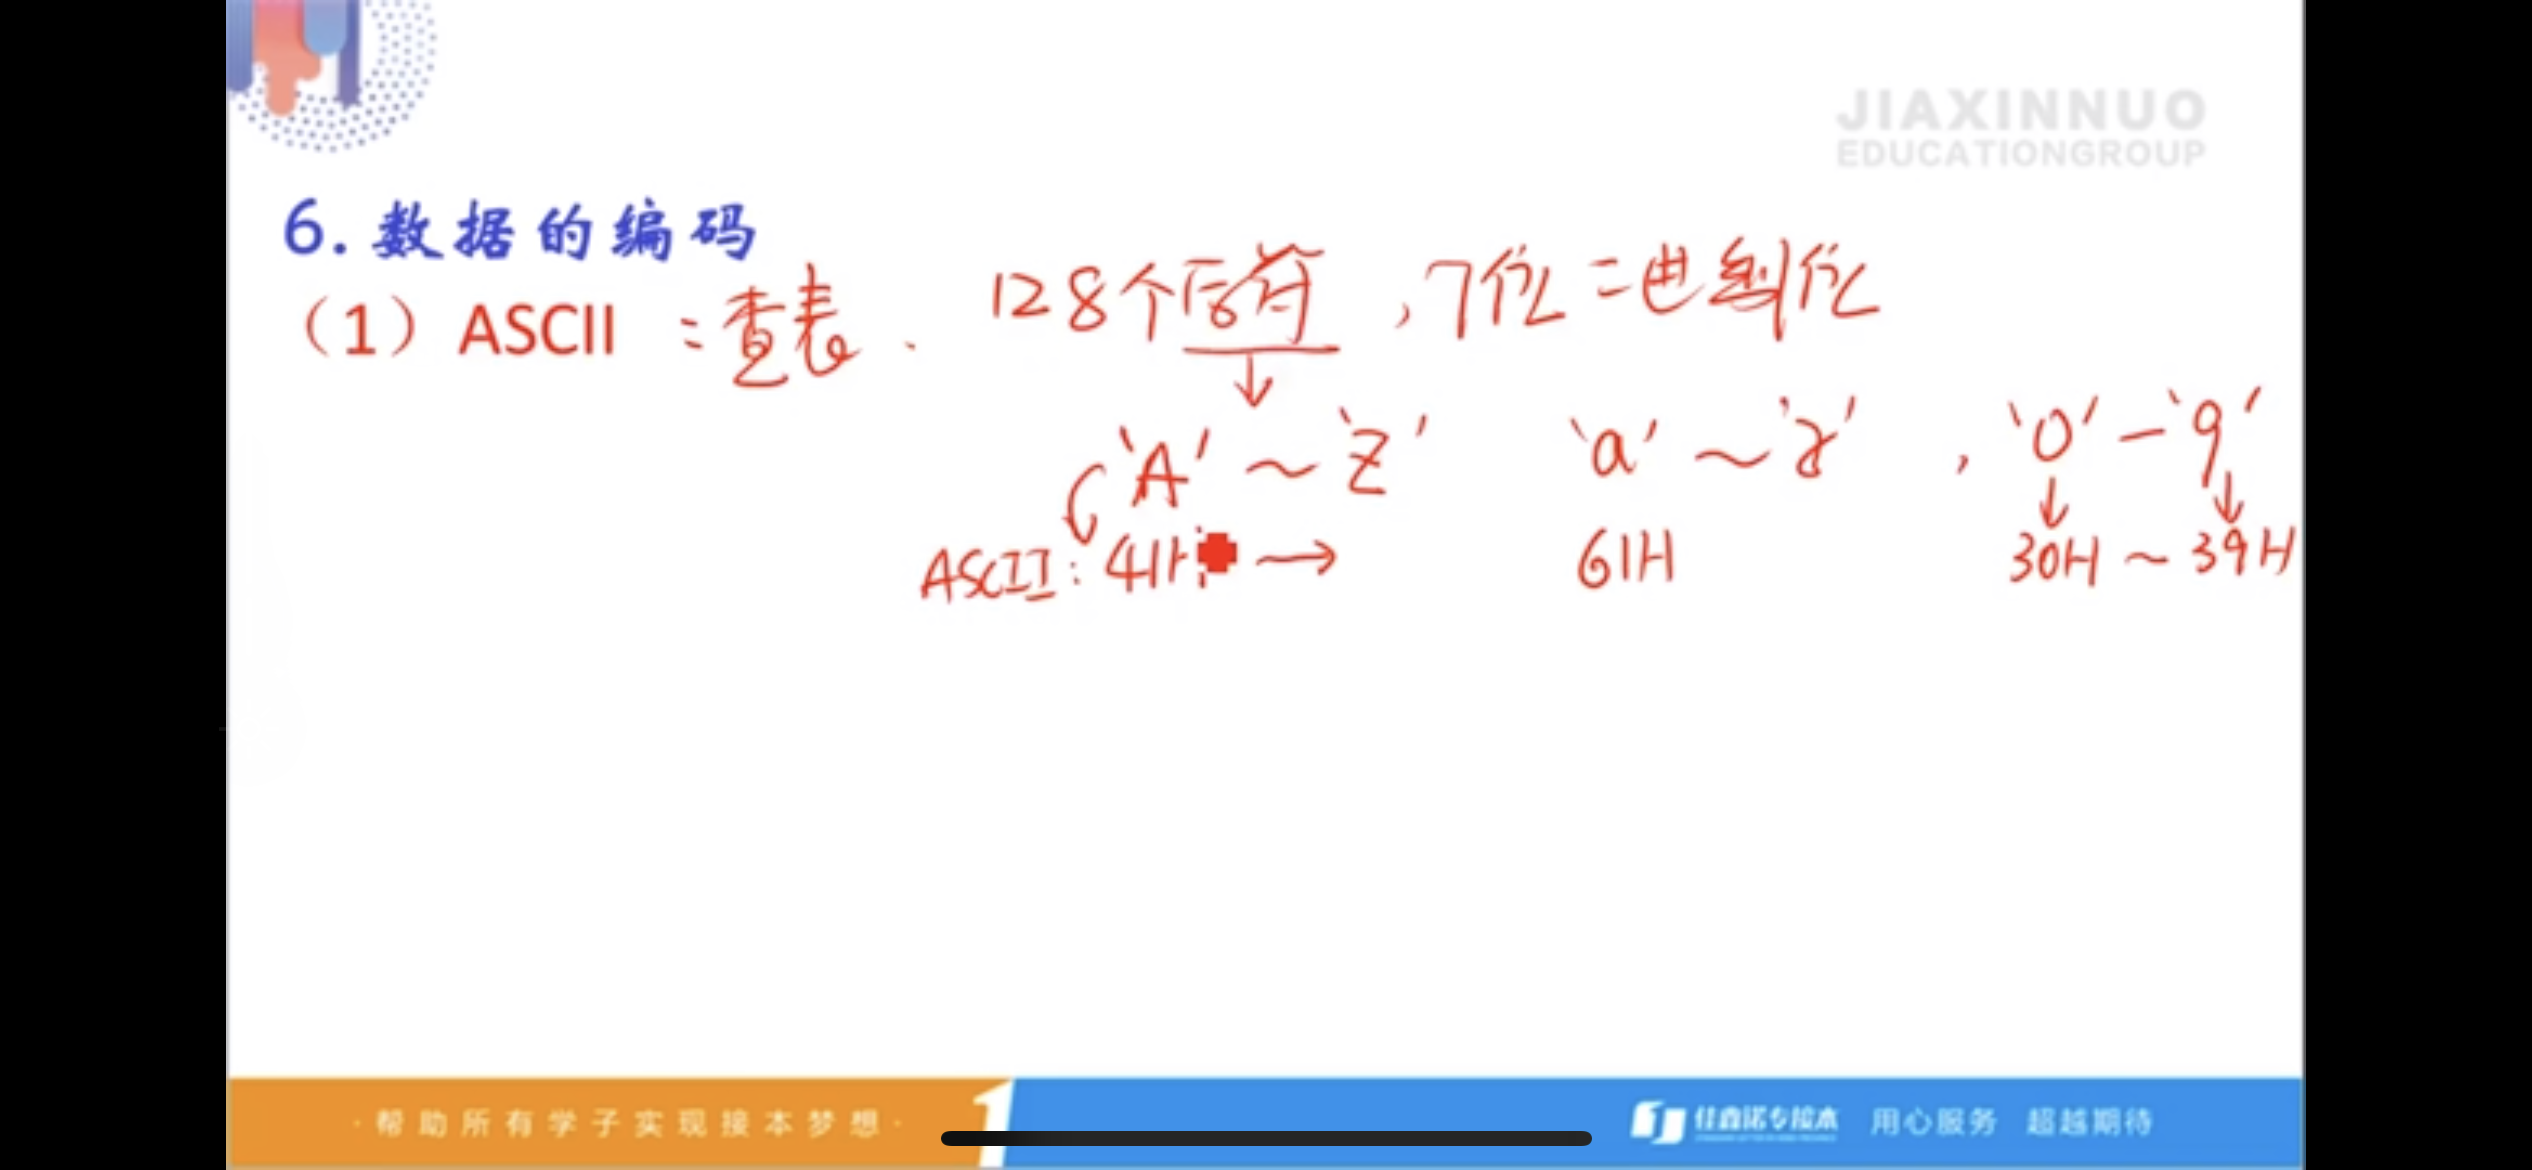 JIAXINNUO
EDUCATIONGROUP
6.数据的编码
（1）ASCII：查表. 128个符号,7位二进制位
'A'～'Z' 'a'～'z' ,'0'－'9'
ASCII: 41H → 61H 30H ~ 39H
·帮助所有学子实现接本梦想·
1 佳鑫诺专接本 用心服务 超越期待